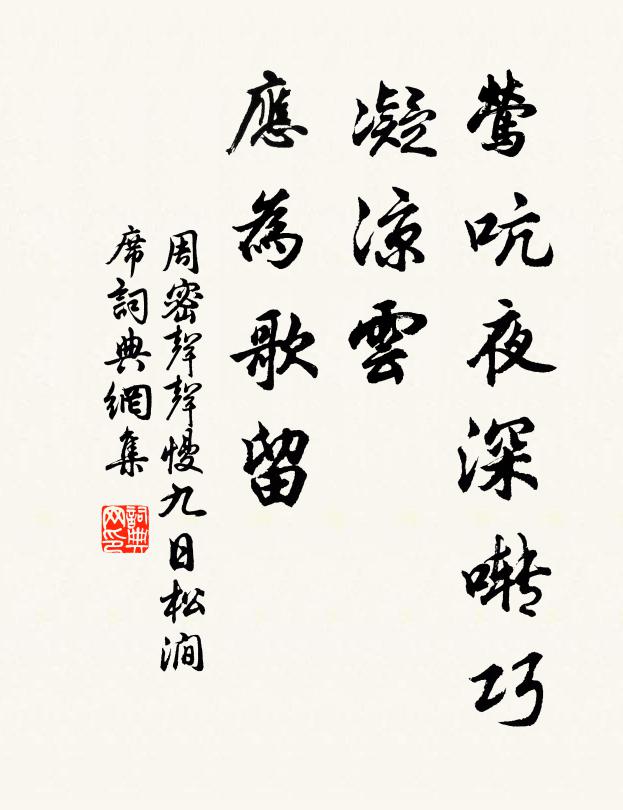 鶯吭夜深囀巧
凝涼雲
應為歌留
周密聲聲慢九日松澗
席詞典網集
詞典
网印